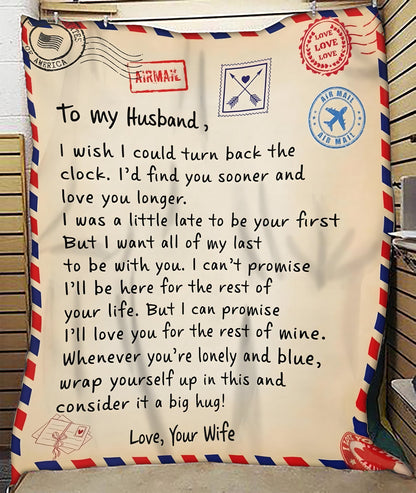 OF AMERICA
AIRMAIL
LOVE
LOVE
LOVE
AIR MAIL
AIR MAIL
To my Husband,
I wish I could turn back the
clock. I'd find you sooner and
love you longer.
I was a little late to be your first
But I want all of my last
to be with you. I can't promise
I'll be here for the rest of
your life. But I can promise
I'll love you for the rest of mine.
Whenever you're lonely and blue,
wrap yourself up in this and
consider it a big hug!
Love, Your Wife